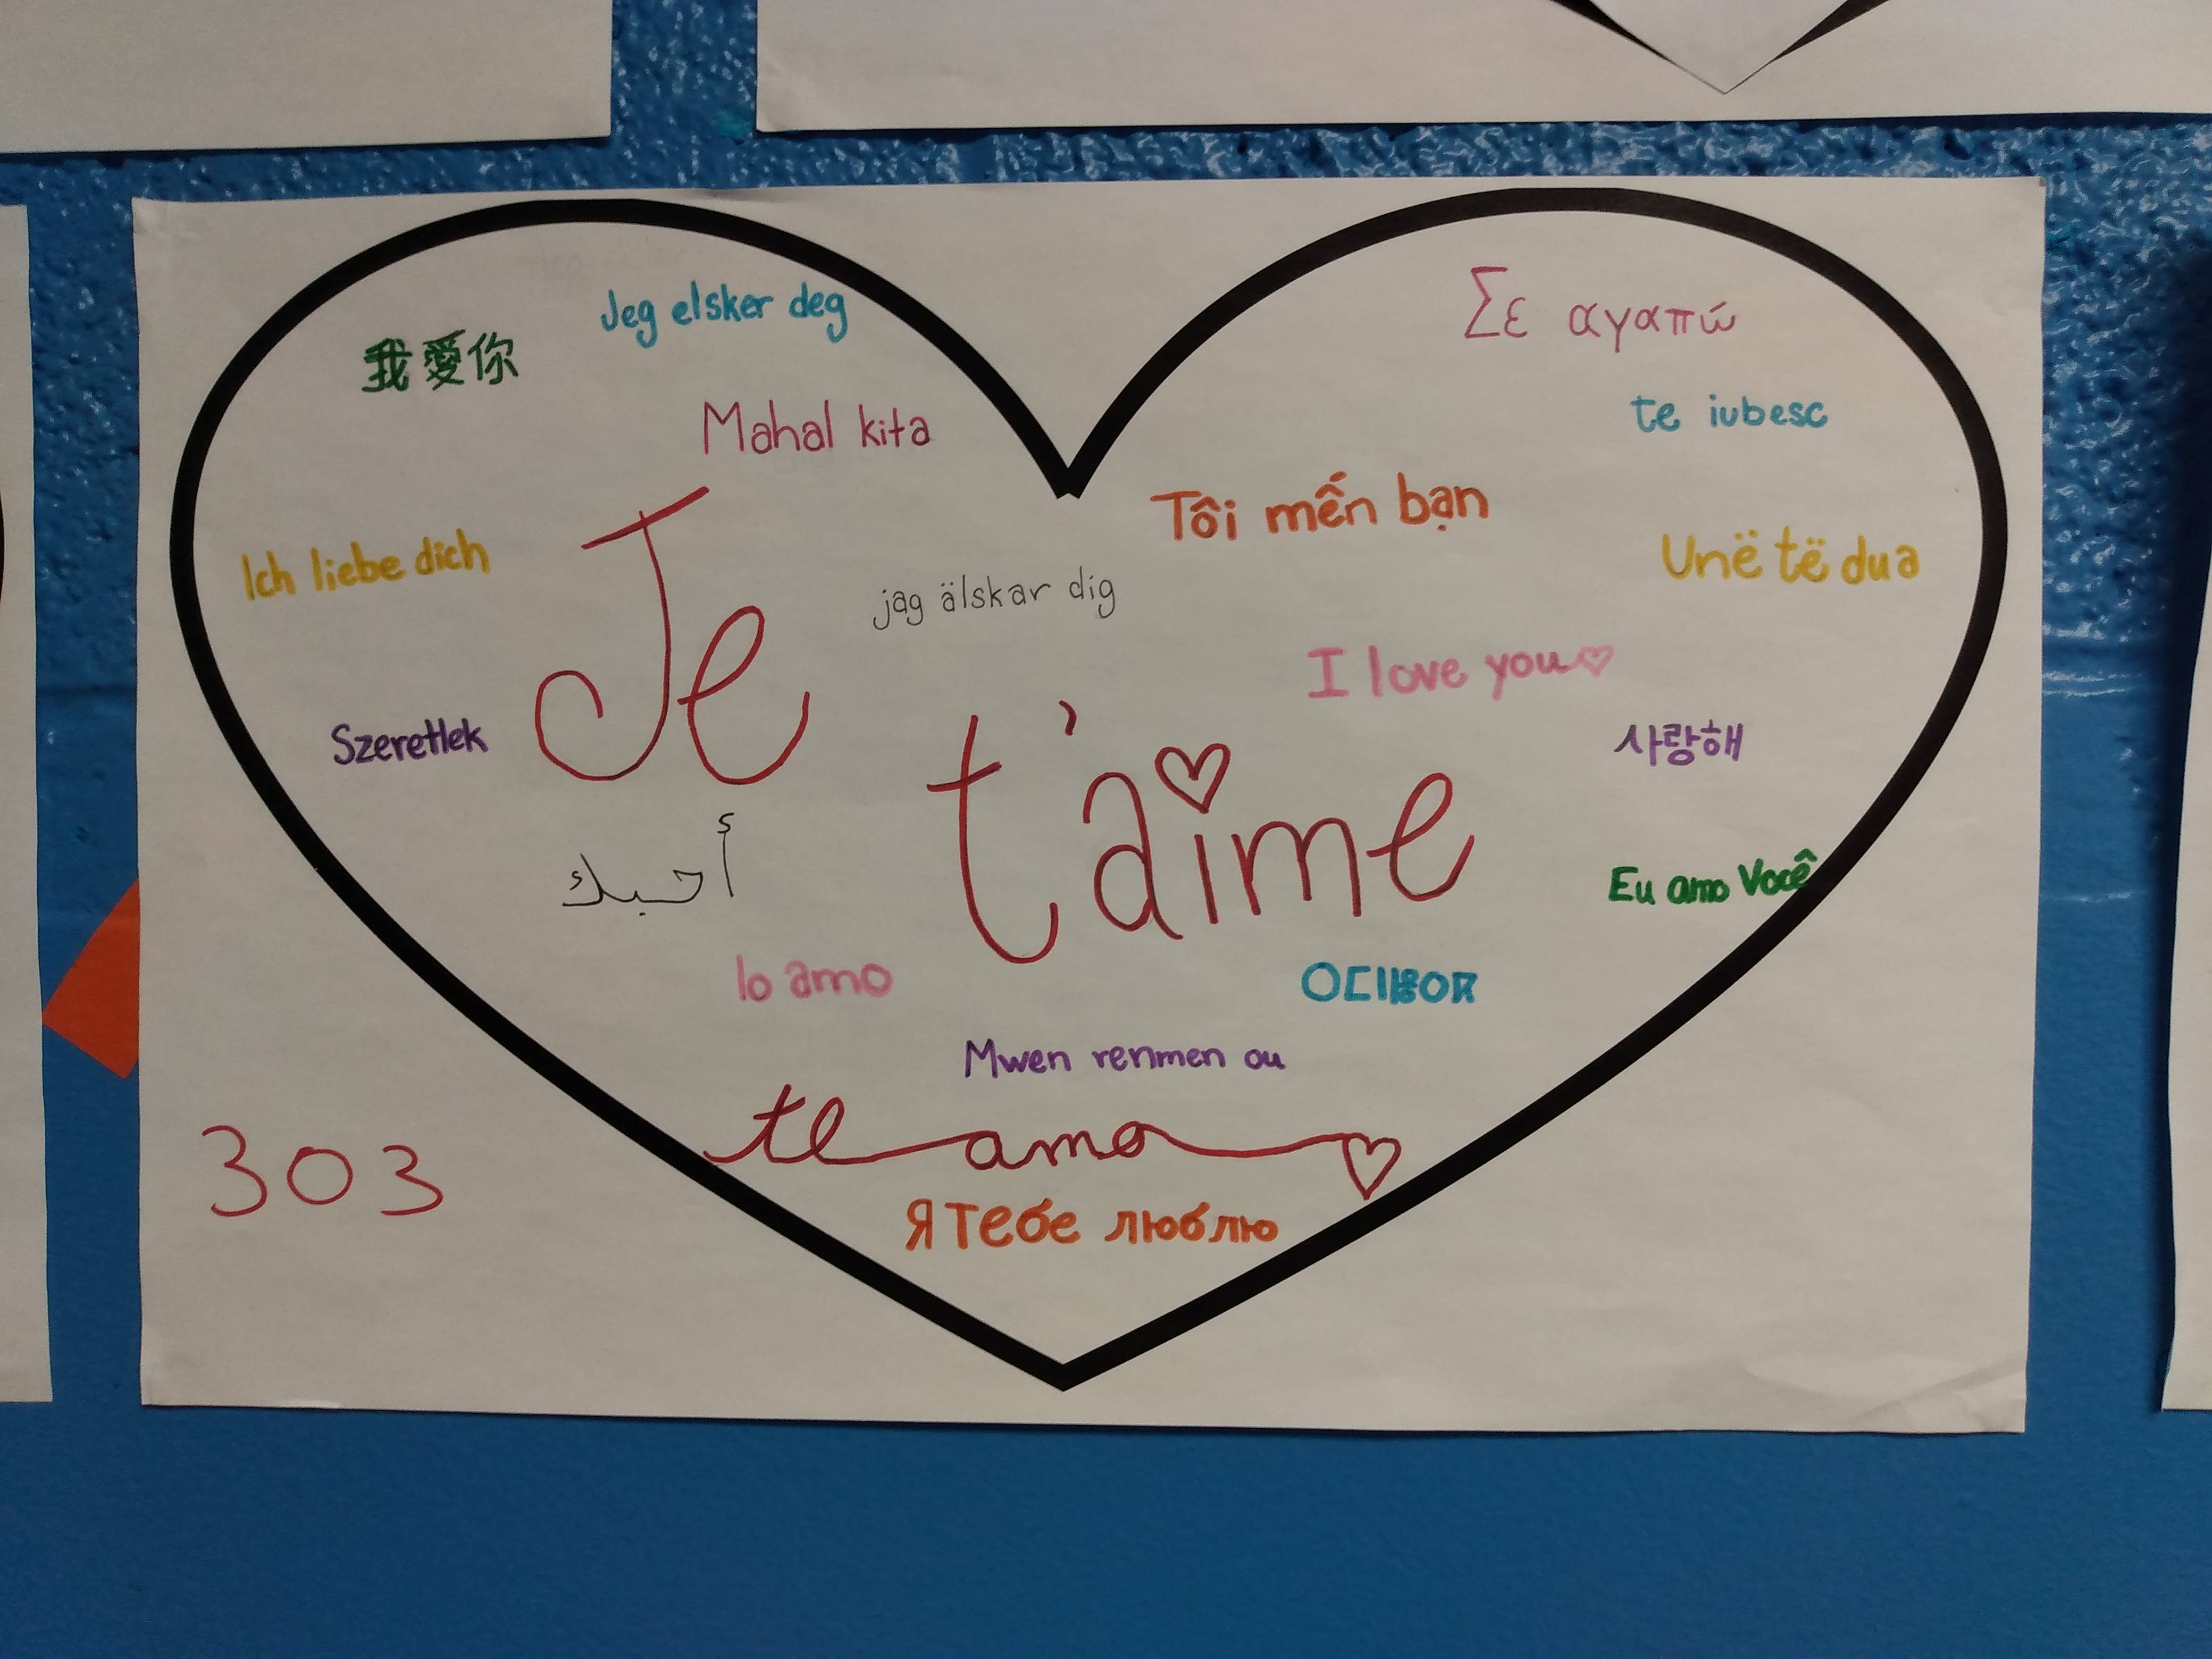 Jeg elsker deg
Σε αγαπώ
我愛你
Mahal kita
te iubesc
Tôi mến bạn
Ich liebe dich
Unë të dua
jag älskar dig
Je
I love you♡
Szeretlek
사랑해
t'aime
أحبك
Eu amo Você
Io amo
Mwen renmen ou
te amo
303
Я тебе люблю